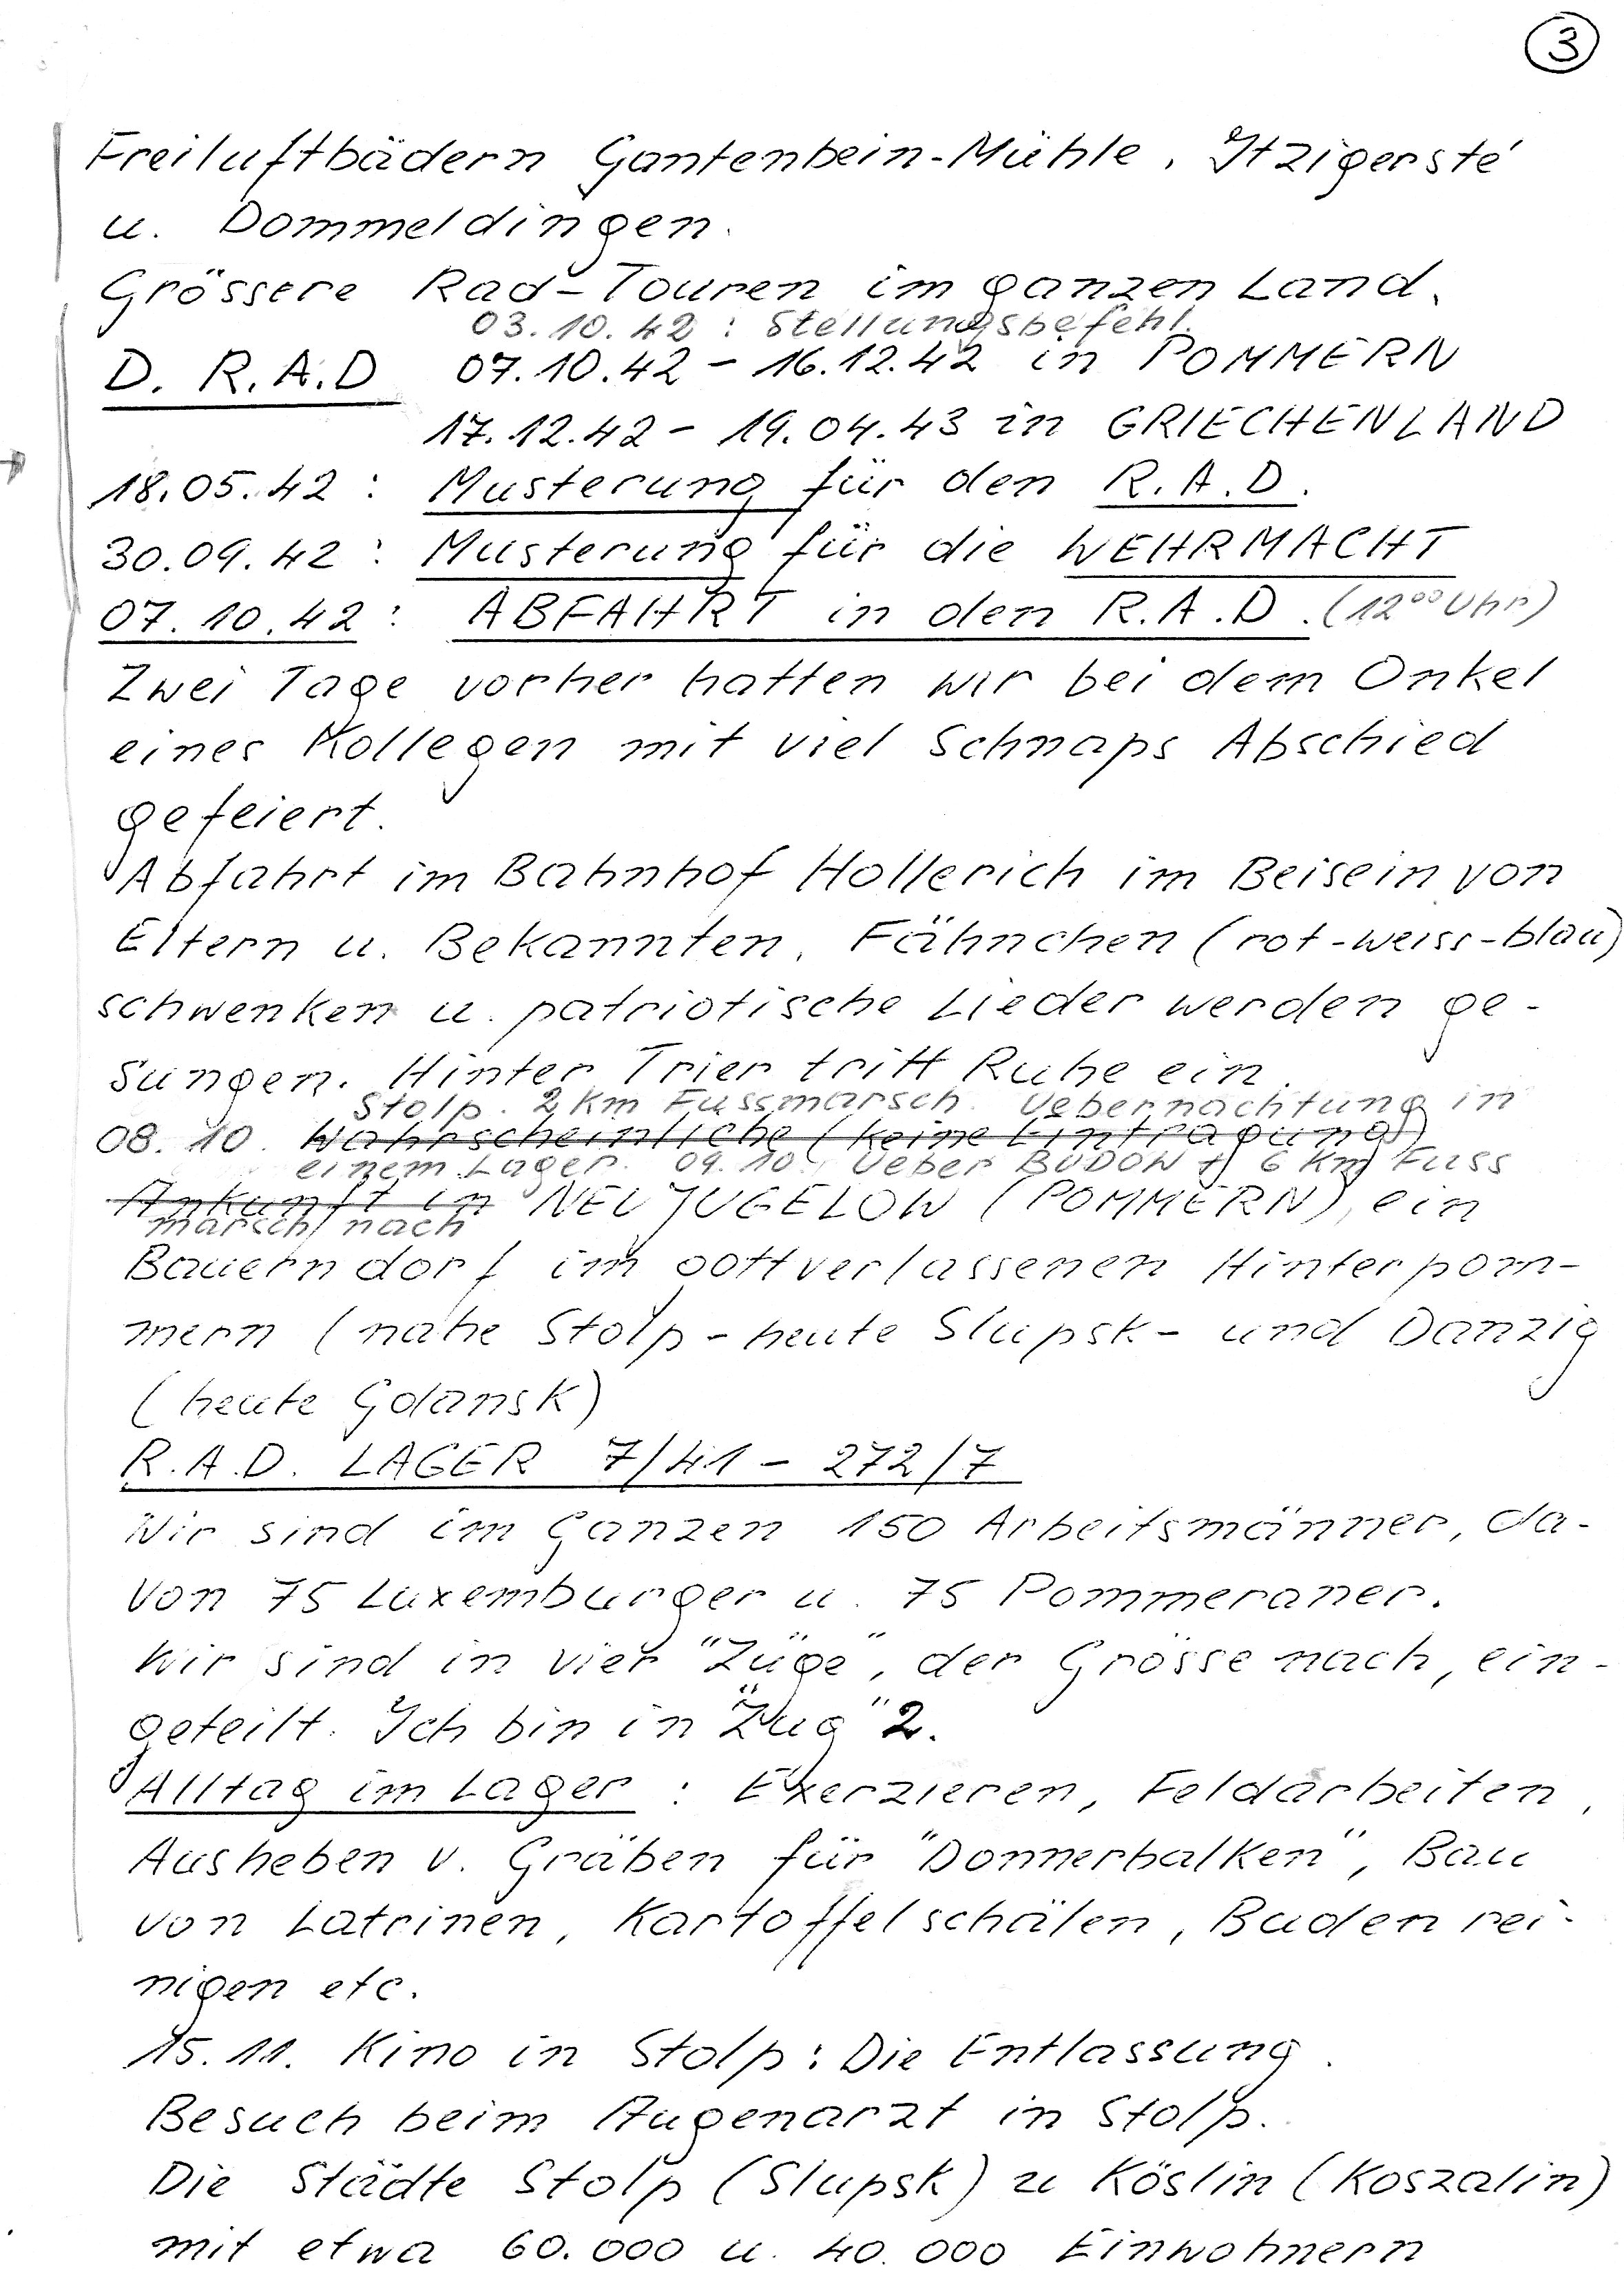 3
Freiluftbädern Gantenbein-Mühle, Itzigersté
u. Dommeldingen.
Grössere Rad-Touren im ganzen Land.
03.10.42 : Stellungsbefehl.
D. R.A.D 07.10.42 - 16.12.42 in POMMERN
17.12.42 - 19.04.43 in GRIECHENLAND
18.05.42 : Musterung für den R.A.D.
30.09.42 : Musterung für die WEHRMACHT
07.10.42 : ABFAHRT in den R.A.D. (12⁰⁰ Uhr)
Zwei Tage vorher hatten wir bei dem Onkel
eines Kollegen mit viel Schnaps Abschied
gefeiert.
Abfahrt im Bahnhof Hollerich im Beisein von
Eltern u. Bekannten. Fähnchen (rot-weiss-blau)
schwenken u. patriotische Lieder werden ge-
sungen. Hinter Trier tritt Ruhe ein.
Stolp. 2 Km Fussmarsch. Uebernachtung in
08.10. Wahrscheinliche (keine Eintragung)
einem Lager. 09.10. Ueber BUDOW + 6 Km Fuss
Ankunft in NEU JUGELOW (POMMERN), ein
marsch nach
Bauerndorf im gottverlassenen Hinterpom-
mern (nahe Stolp - heute Slupsk - und Danzig
(heute Gdansk)
R.A.D. LAGER 7/41 - 272/7
Wir sind im Ganzen 150 Arbeitsmänner, da-
von 75 Luxemburger u. 75 Pommeraner.
Wir sind in vier "Züge", der Grösse nach, ein-
geteilt. Ich bin in "Zug" 2.
Alltag im Lager : Exerzieren, Feldarbeiten,
Ausheben v. Gräben für "Donnerbalken", Bau
von Latrinen, Kartoffelschälen, Buden rei-
nigen etc.
15.11. Kino in Stolp: Die Entlassung.
Besuch beim Augenarzt in Stolp.
Die Städte Stolp (Slupsk) u Köslin (Koszalin)
mit etwa 60.000 u. 40.000 Einwohnern